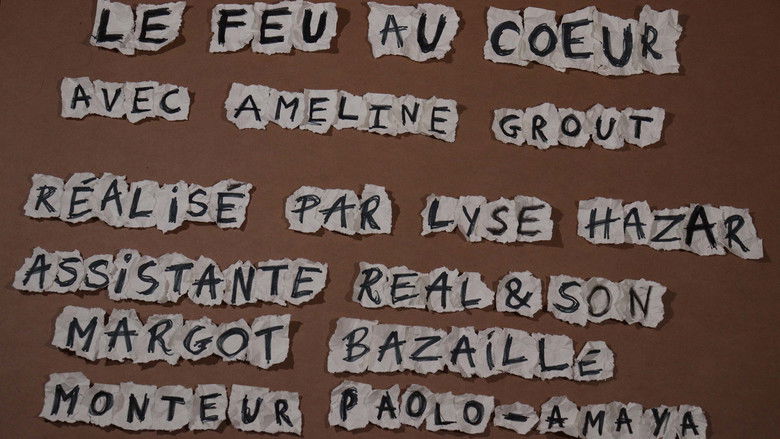 LE FEU AU COEUR
AVEC AMELINE GROUT
RÉALiSÉ PAR LYSE HAZAR
ASSiSTANTE REAL & SON
MARGOT BAZAiLLE
MONTEUR PAOLO-AMAYA